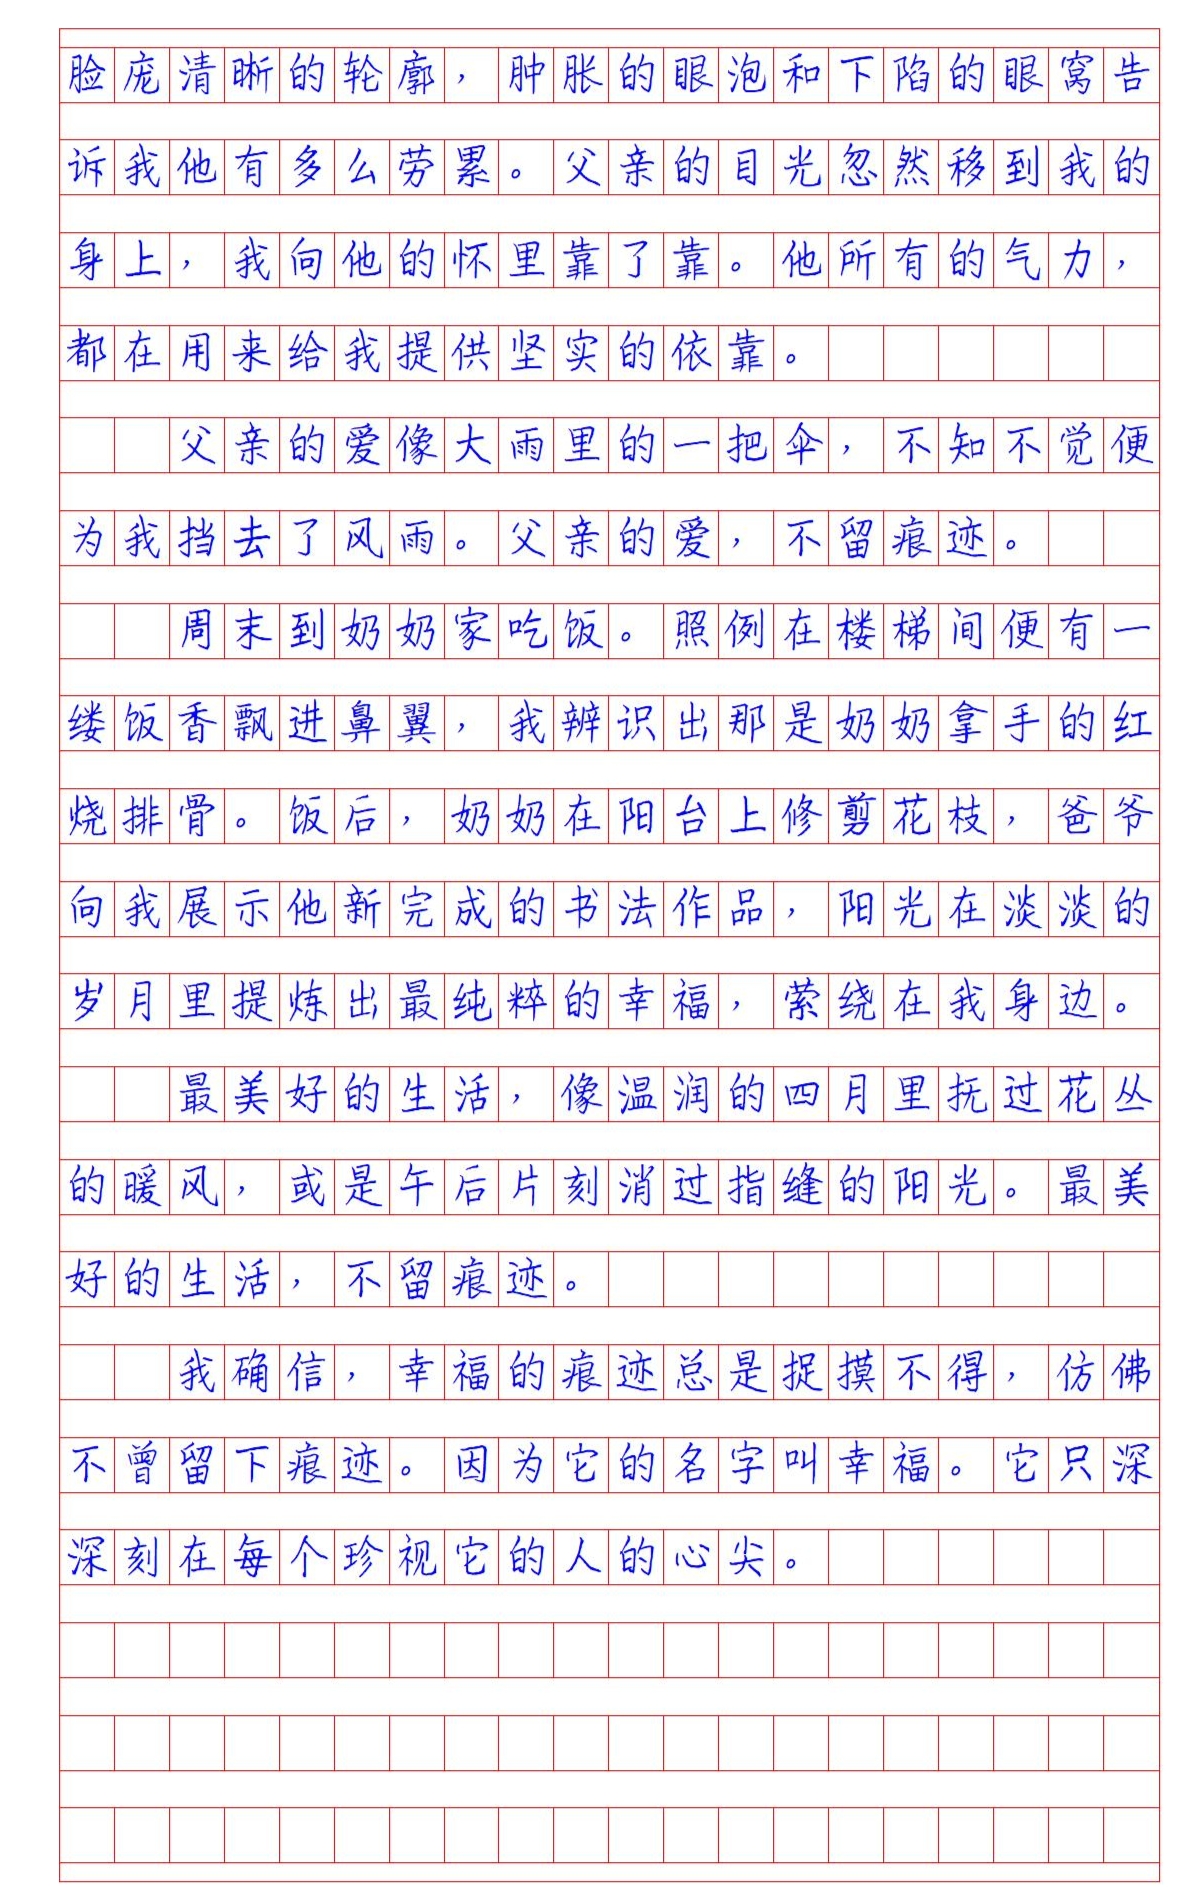 脸庞清晰的轮廓，肿胀的眼泡和下陷的眼窝告
诉我他有多么劳累。父亲的目光忽然移到我的
身上，我向他的怀里靠了靠。他所有的气力，
都在用来给我提供坚实的依靠。
父亲的爱像大雨里的一把伞，不知不觉便
为我挡去了风雨。父亲的爱，不留痕迹。
周末到奶奶家吃饭。照例在楼梯间便有一
缕饭香飘进鼻翼，我辨识出那是奶奶拿手的红
烧排骨。饭后，奶奶在阳台上修剪花枝，爸爷
向我展示他新完成的书法作品，阳光在淡淡的
岁月里提炼出最纯粹的幸福，萦绕在我身边。
最美好的生活，像温润的四月里抚过花丛
的暖风，或是午后片刻消过指缝的阳光。最美
好的生活，不留痕迹。
我确信，幸福的痕迹总是捉摸不得，仿佛
不曾留下痕迹。因为它的名字叫幸福。它只深
深刻在每个珍视它的人的心尖。